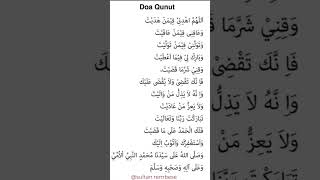 Doa Qunut
اَللّٰهُمَّ اهْدِنِيْ فِيْمَنْ هَدَيْتَ
وَعَافِنِى فِيْمَنْ عَافَيْتَ
وَتَوَلَّنِيْ فِيْمَنْ تَوَلَّيْتَ
وَبَارِكْ لِيْ فِيْمَا اَعْطَيْتَ
وَقِنِيْ شَرَّمَا قَضَيْتَ،
فَاِ نَّكَ تَقْضِىْ وَلاَ يُقْضَى عَلَيْكَ
وَاِ نَّهُ لاَ يَذِلُّ مَنْ وَالَيْتَ
وَلاَ يَعِزُّ مَنْ عَادَيْتَ
تَبَارَكْتَ رَبَّنَا وَتَعَالَيْتَ
فَلَكَ الْحَمْدُ عَلَى مَا قَضَيْتَ
وَاَسْتَغْفِرُكَ وَاَتُوْبُ اِلَيْكَ
وَصَلَّى اللهُ عَلَى سَيِّدِنَا مُحَمَّدٍ النَّبِيِّ اْلاُمِّيِّ
وَعَلَى آلِهِ وَصَحْبِهِ وَسَلَّمَ
@sultan.rembese